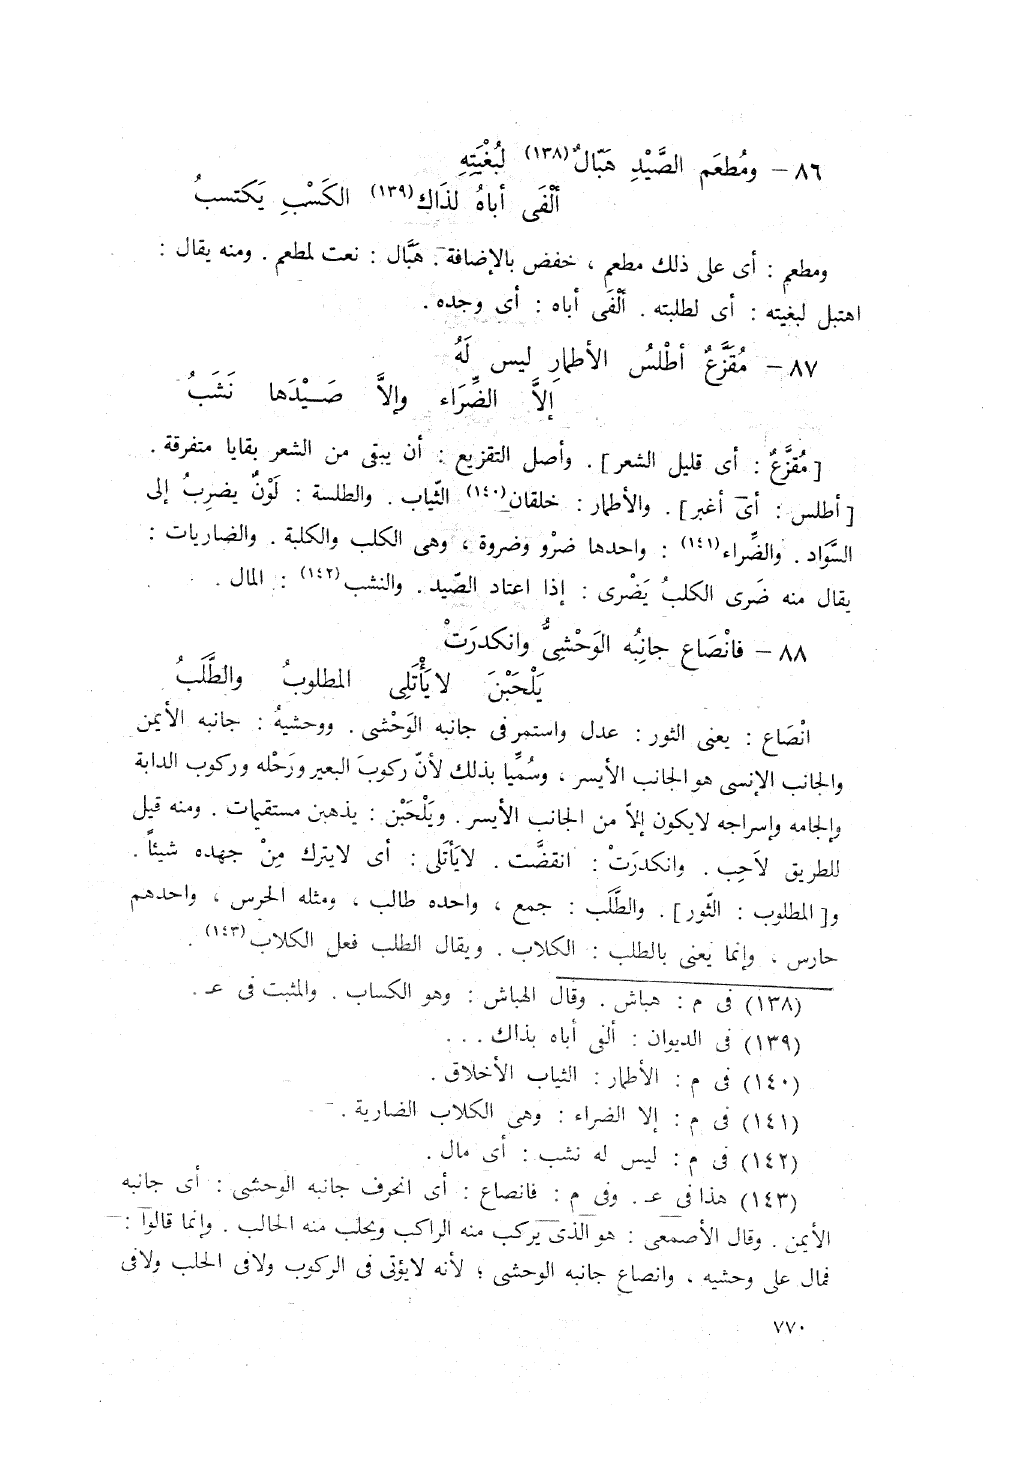 ٨٦ – ومُطعَم الصَّيْدِ هَبّالٌ(١٣٨) لبُغْيَتِهِ
ألْفَى أباهُ لذَاك(١٣٩) الكَسْبِ يَكتسبُ
ومطعم : أى على ذلك مطعم ، خفض بالإضافة . هَبَّال : نعت لمطعم . ومنه يقال :
اهتبل لبغيته : أى لطلبته . ألْفَى أباه : أى وجده .
٨٧ – مُقَزَّعٌ أطْلسُ الأطمارِ ليس لَهُ
إلاَّ الضِّرَاء وإلاَّ صَيْدَها نَشَبُ
[مُقزَّعٌ : أى قليل الشعر] . وأصل التقزيع : أن يبقى من الشعر بقايا متفرقة .
[أطلس : أى أغبر] . والأطمار : خلقان(١٤٠) الثّياب . والطلسة : لَوْنٌ يضربُ إلى
السَّوَاد . والضِّراء(١٤١) : واحدها ضرْو وضروة ، وهى الكلب والكلبة . والضاريات :
يقال منه ضَرى الكلبُ يَضْرى : إذا اعتاد الصّيد . والنشب(١٤٢) : المال .
٨٨ – فانْصَاع جانِبُه الوَحْشِىُّ وانكدرَتْ
يَلْحَبْنَ لايَأْتَلِى المطلوبُ والطَّلَبُ
انْصَاع : يعنى الثور : عدل واستمر فى جانبه الوَحْشى . ووحشيهُ : جانبه الأيمن
والجانب الإنسى هو الجانب الأيسر ، وسُمِّيا بذلك لأنّ ركوبَ البعير ورَحْله وركوب الدابة
وإلجامه وإسراجه لايكون إلاّ من الجانب الأيسر . ويَلْحَبْن : يذهبن مستقيمات . ومنه قيل
للطريق لاَحِب . وانكدرَتْ : انقضَّت . لايَأتَلى : أى لايترك مِنْ جهده شيئاً .
و[المطلوب : الثّور] . والطَّلَب : جمع ، واحده طالب ، ومثله الحرس ، واحدهم
حارس ، وإنما يعنى بالطلب : الكلاب . ويقال الطلب فعل الكلاب(١٤٣) .
(١٣٨) فى م : هباش . وقال الهباش : وهو الكساب . والمثبت فى عـ .
(١٣٩) فى الديوان : ألفى أباه بذاك . . .
(١٤٠) فى م : الأطمار : الثياب الأخلاق .
(١٤١) فى م : إلا الضراء : وهى الكلاب الضارية .
(١٤٢) فى م : ليس له نشب : أى مال .
(١٤٣) هذا فى عـ . وفى م : فانصاع : أى انحرف جانبه الوحشى : أى جانبه
الأيمن . وقال الأصمعى : هو الذى يركب منه الراكب ويحلب منه الحالب . وإنما قالوا :
فمال على وحشيه ، وانصاع جانبه الوحشى ؛ لأنه لايؤتى فى الركوب ولافى الحلب ولافى
٧٧٠